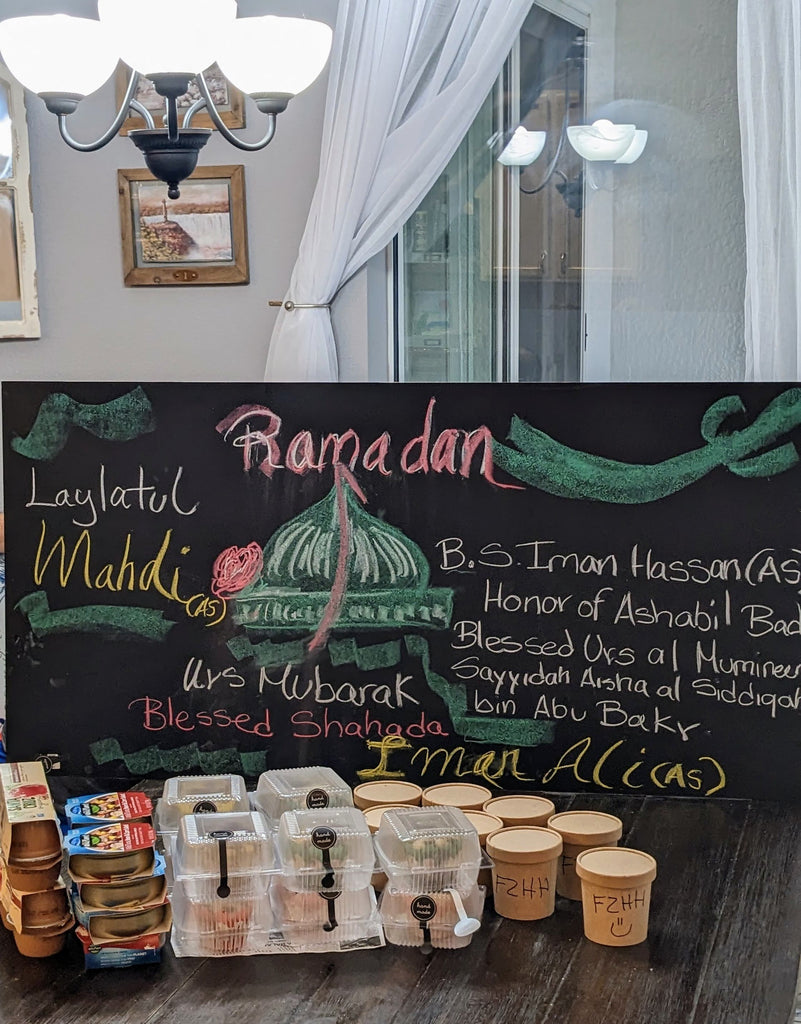 Ramadan
Laylatul
Mahdi
(AS)
B.S. Iman Hassan (AS)
Honor of Ashabil Bad
Blessed Urs al Mumineen
Sayyidah Aisha al Siddiqah
bin Abu Bakr
Urs Mubarak
Blessed Shahada
Iman Ali (AS)
hand
made
hand
made
hand
made
FZHH
FZHH